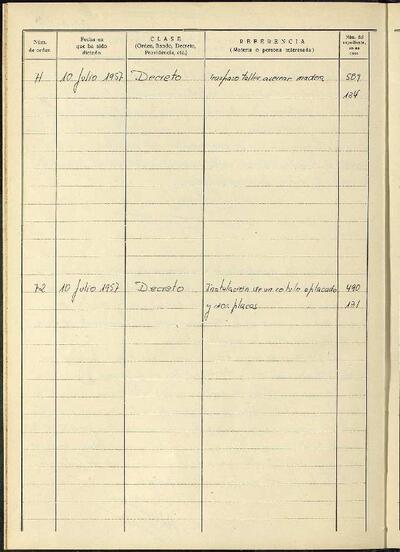 Núm. de orden
Fecha en que ha sido dictado
CLASE
(Orden, Bando, Decreto, Providencia, etc.)
REFERENCIA
(Materia o persona interesada)
Núm. del expediente, en su caso
10 Julio 1957 Decreto traspaso taller aserrar madera 509
134
72 10 Julio 1957 Decreto Instalación de un rotulo aplacado 490
y dos placas 131